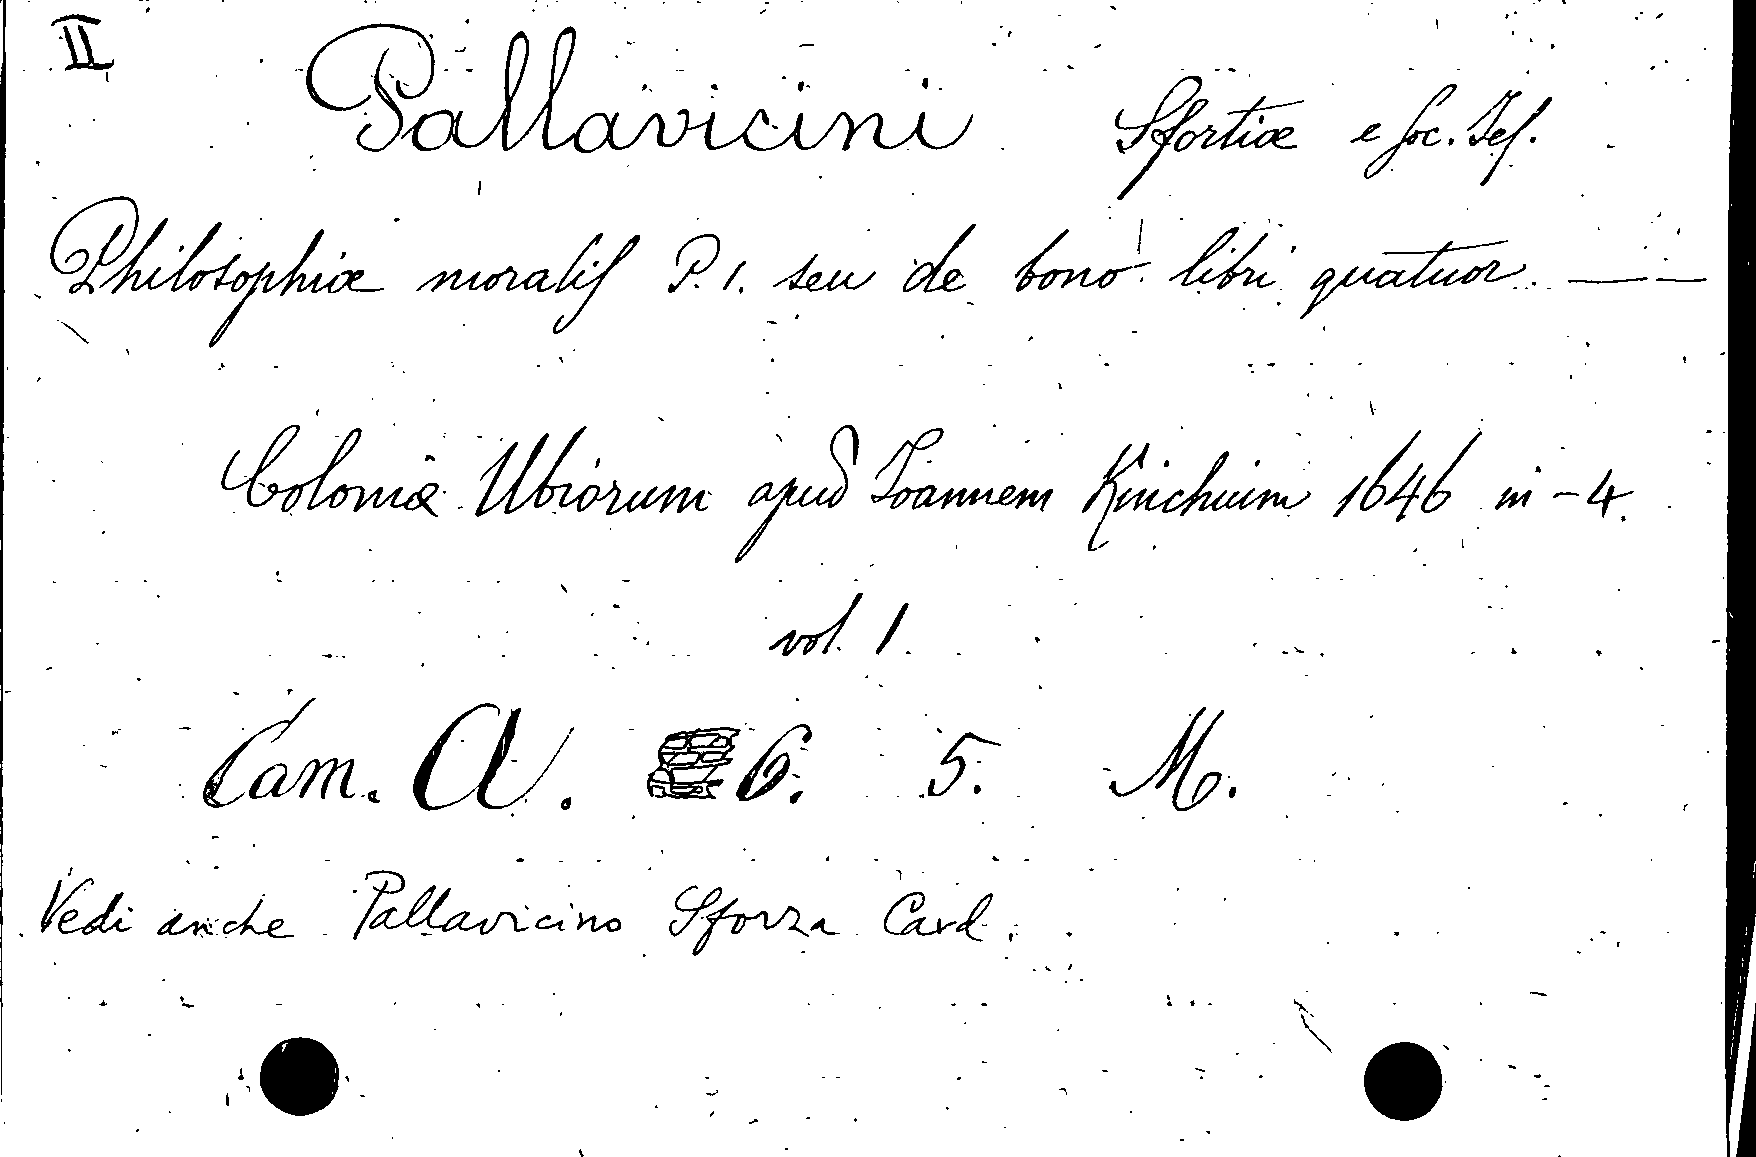 II
Pallavicini Sfortiæ e Soc. Jes.
Philosophiæ moralis P. 1. seu de bono libri quatuor. —
Coloniæ Ubiorum apud Joannem Kinchium 1646 in-4.
vol. 1.
Cam. A. 6. 5. M.
Vedi anche Pallavicino Sforza Card.